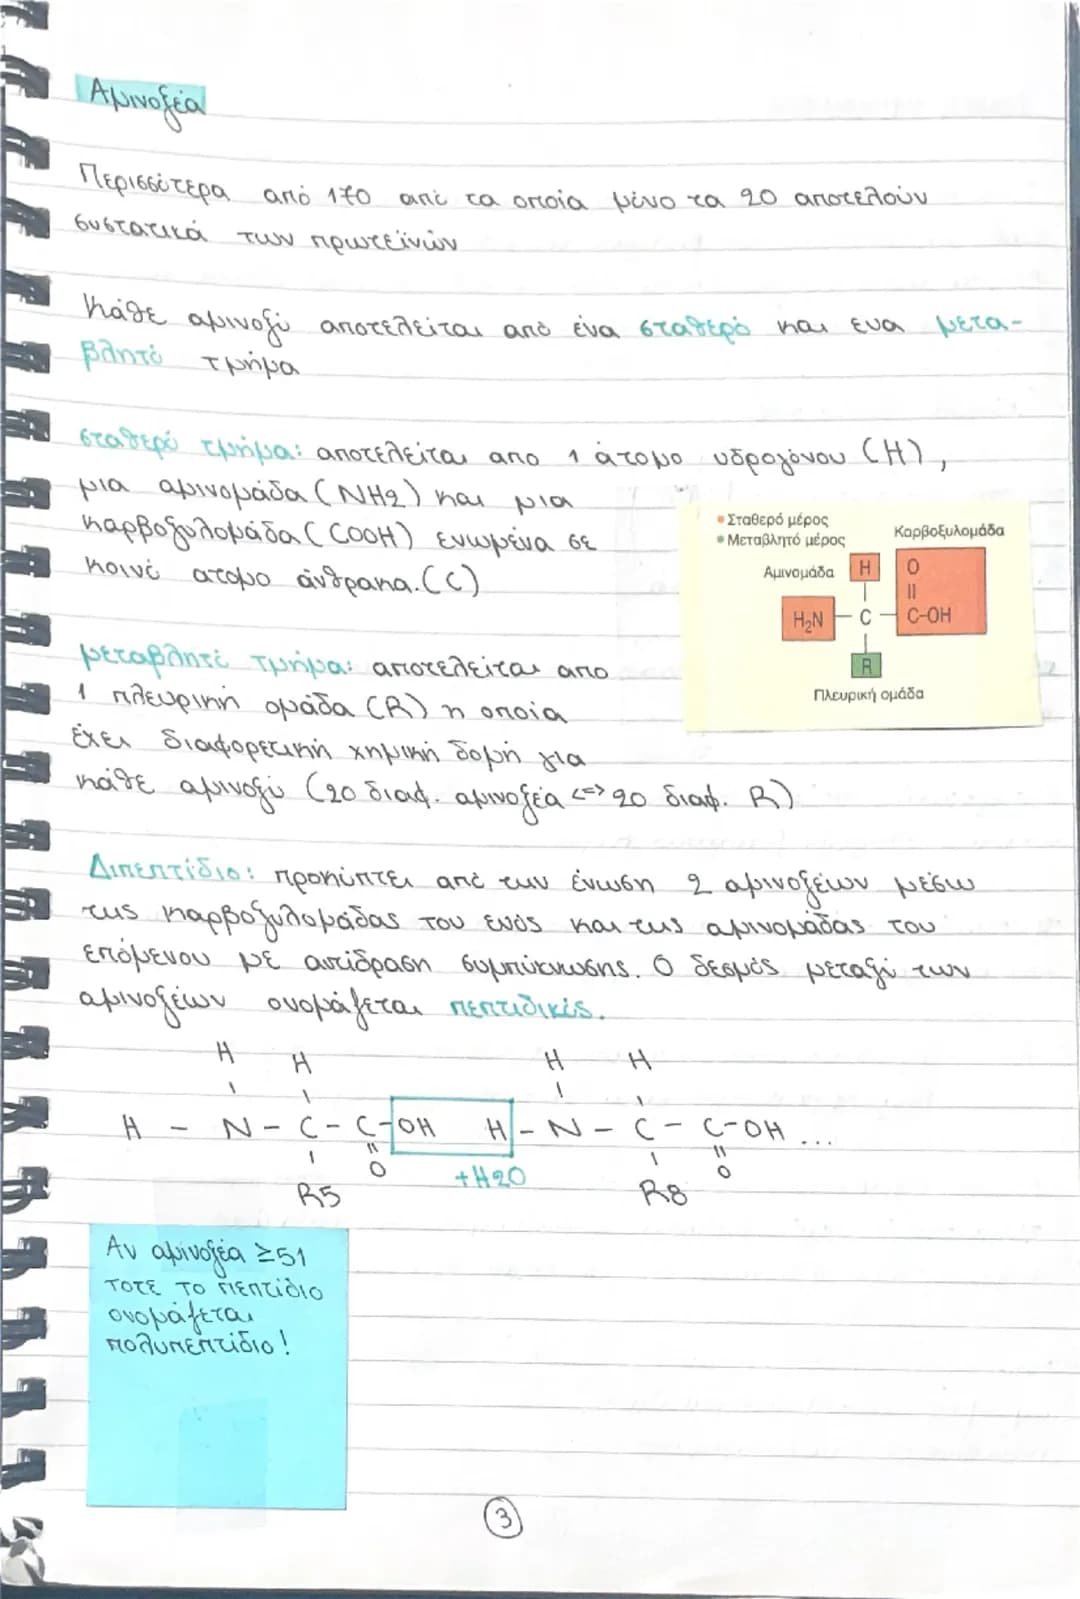 Αμινοξέα
Περισσότερα από 170 από τα οποία μόνο τα 20 αποτελούν
συστατικά των πρωτεϊνών
Κάθε αμινοξύ αποτελείται από ένα σταθερό και ενα μετα-
βλητό τμήμα
σταθερό τμήμα: αποτελείται απο 1 άτομο υδρογόνου (H),
μια αμινομάδα (NH2) και μια
καρβοξυλομάδα (COOH) ενωμένα σε
κοινό ατομο άνθρακα. (C)
• Σταθερό μέρος
• Μεταβλητό μέρος
Καρβοξυλομάδα
Αμινομάδα H O
||
H₂N – C – C-OH
R
Πλευρική ομάδα
μεταβλητό τμήμα: αποτελείται απο
1 πλευρική ομάδα (R) η οποία
έχει διαφορετική χημική δομή για
κάθε αμινοξύ (20 διαφ. αμινοξέα <=> 20 διαφ. R)
Διπεπτίδιο: προκύπτει από την ένωση 2 αμινοξέων μέσω
της καρβοξυλομάδας του ενός και της αμινομάδας του
επόμενου με αντίδραση συμπύκνωσης. Ο δεσμός μεταξύ των
αμινοξέων ονομάζεται πεπτιδικός.
H H H H
H – N – C – C-OH H – N – C – C-OH ...
O O
+H2O
R5 R8
Αν αμινοξέα ≥51
τοτε το πεπτίδιο
ονομάζεται
πολυπεπτίδιο!
3